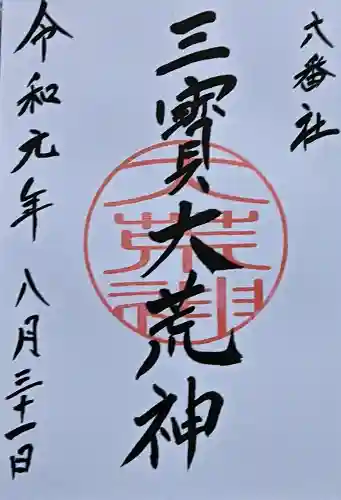 六番社
三寳大荒神
大荒神
令和元年八月三十一日